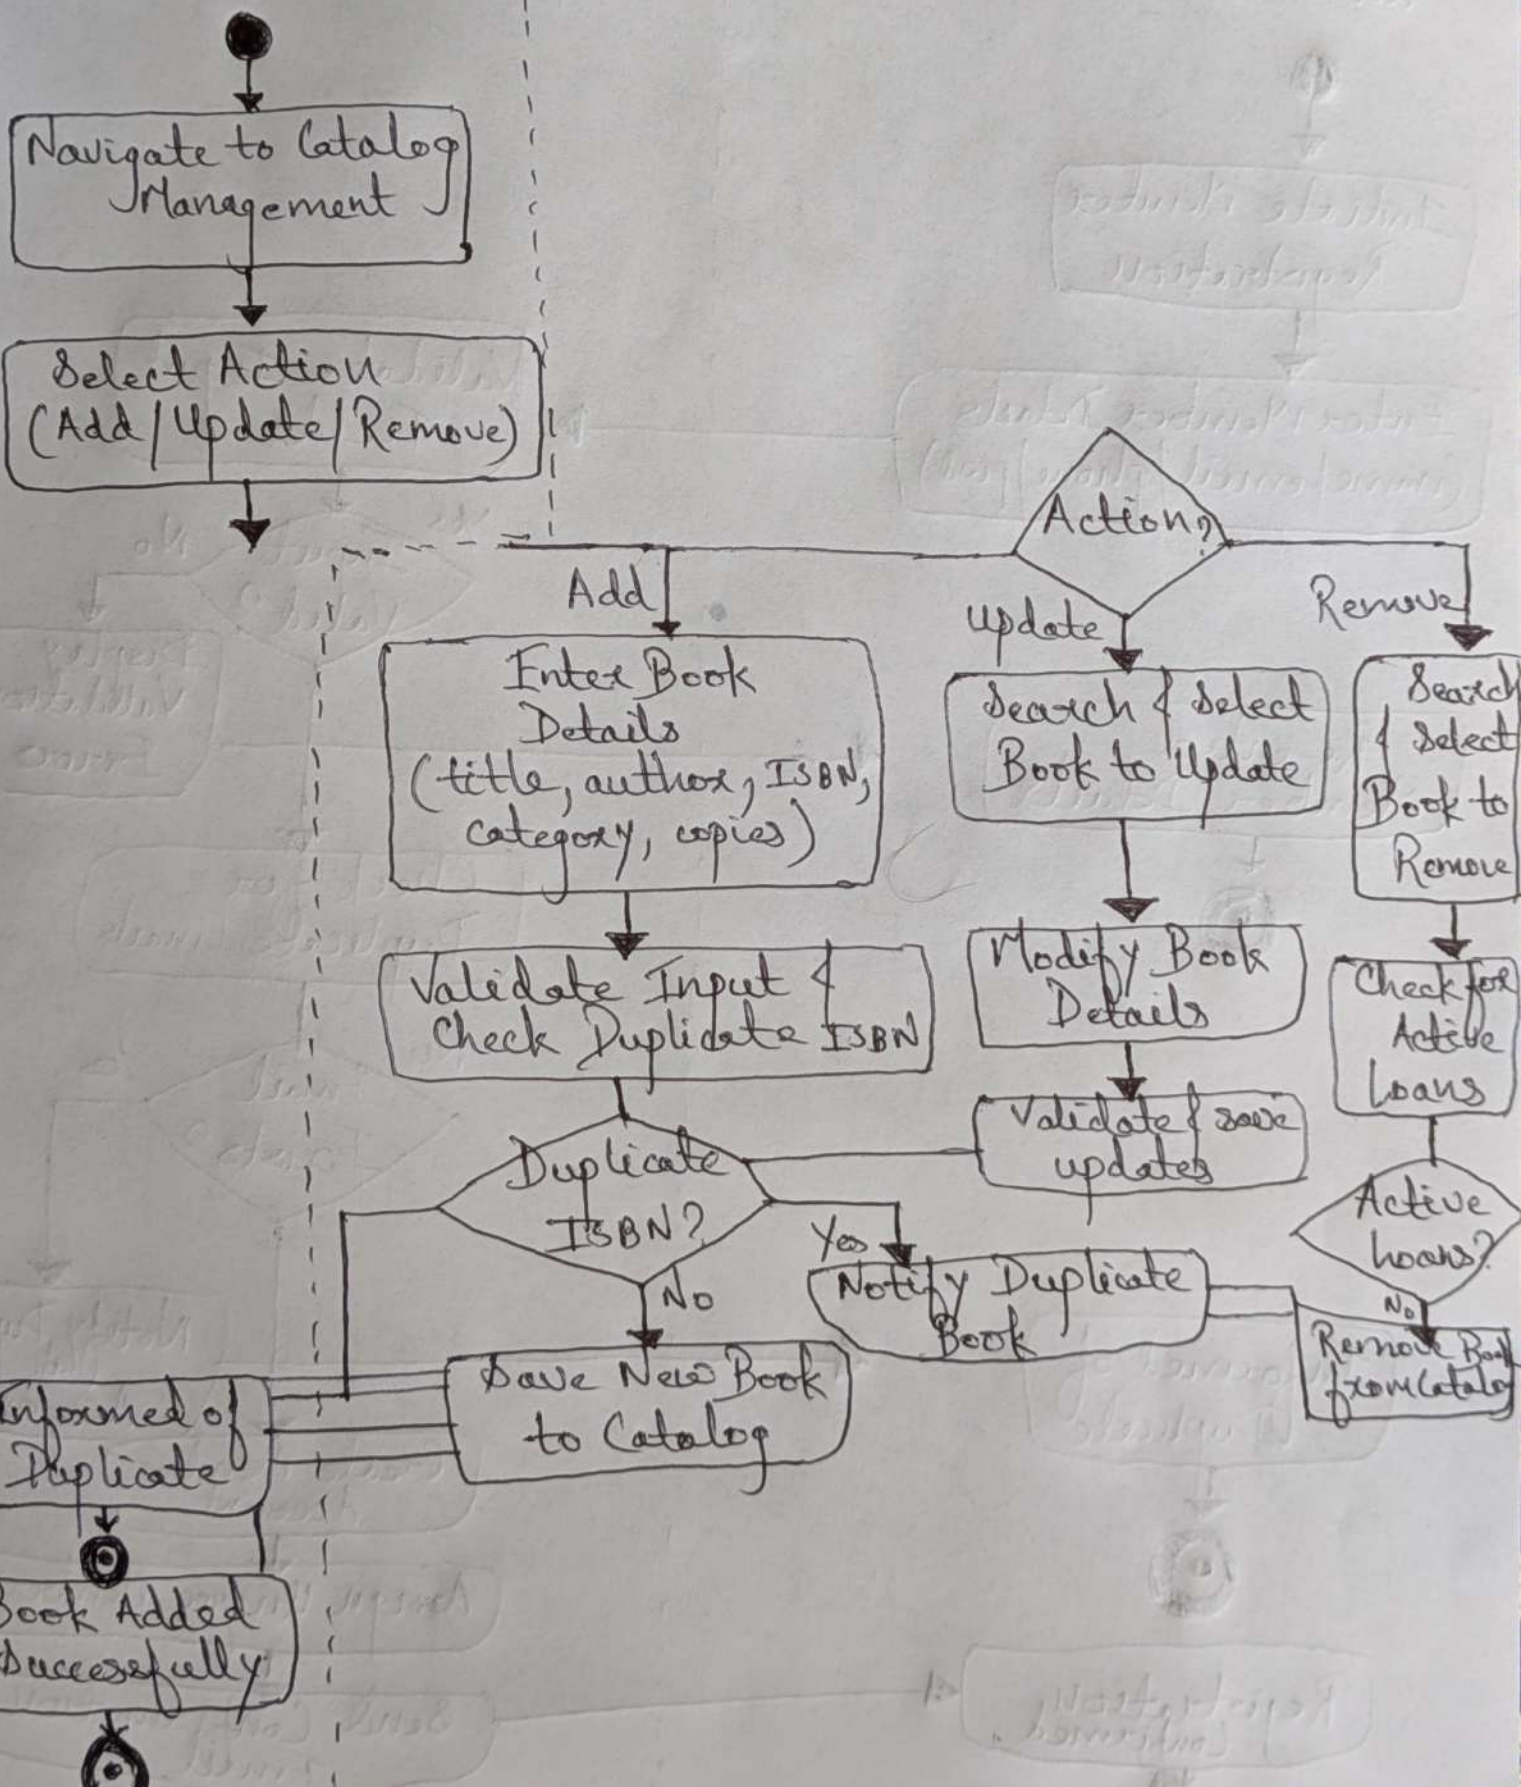 Navigate to Catalog
Management
Select Action
(Add/Update/Remove)
Action?
Add
Update
Remove
Enter Book
Details
(title, author, ISBN,
category, copies)
Search & Select
Book to Update
Search
& Select
Book to
Remove
Validate Input &
Check Duplicate ISBN
Modify Book
Details
Check for
Active
Loans
Validate & save
updates
Duplicate
ISBN?
Yes
No
Active
Loans?
No
Notify Duplicate
Book
Remove Book
from Catalog
Save New Book
to Catalog
Informed of
Duplicate
Book Added
Successfully